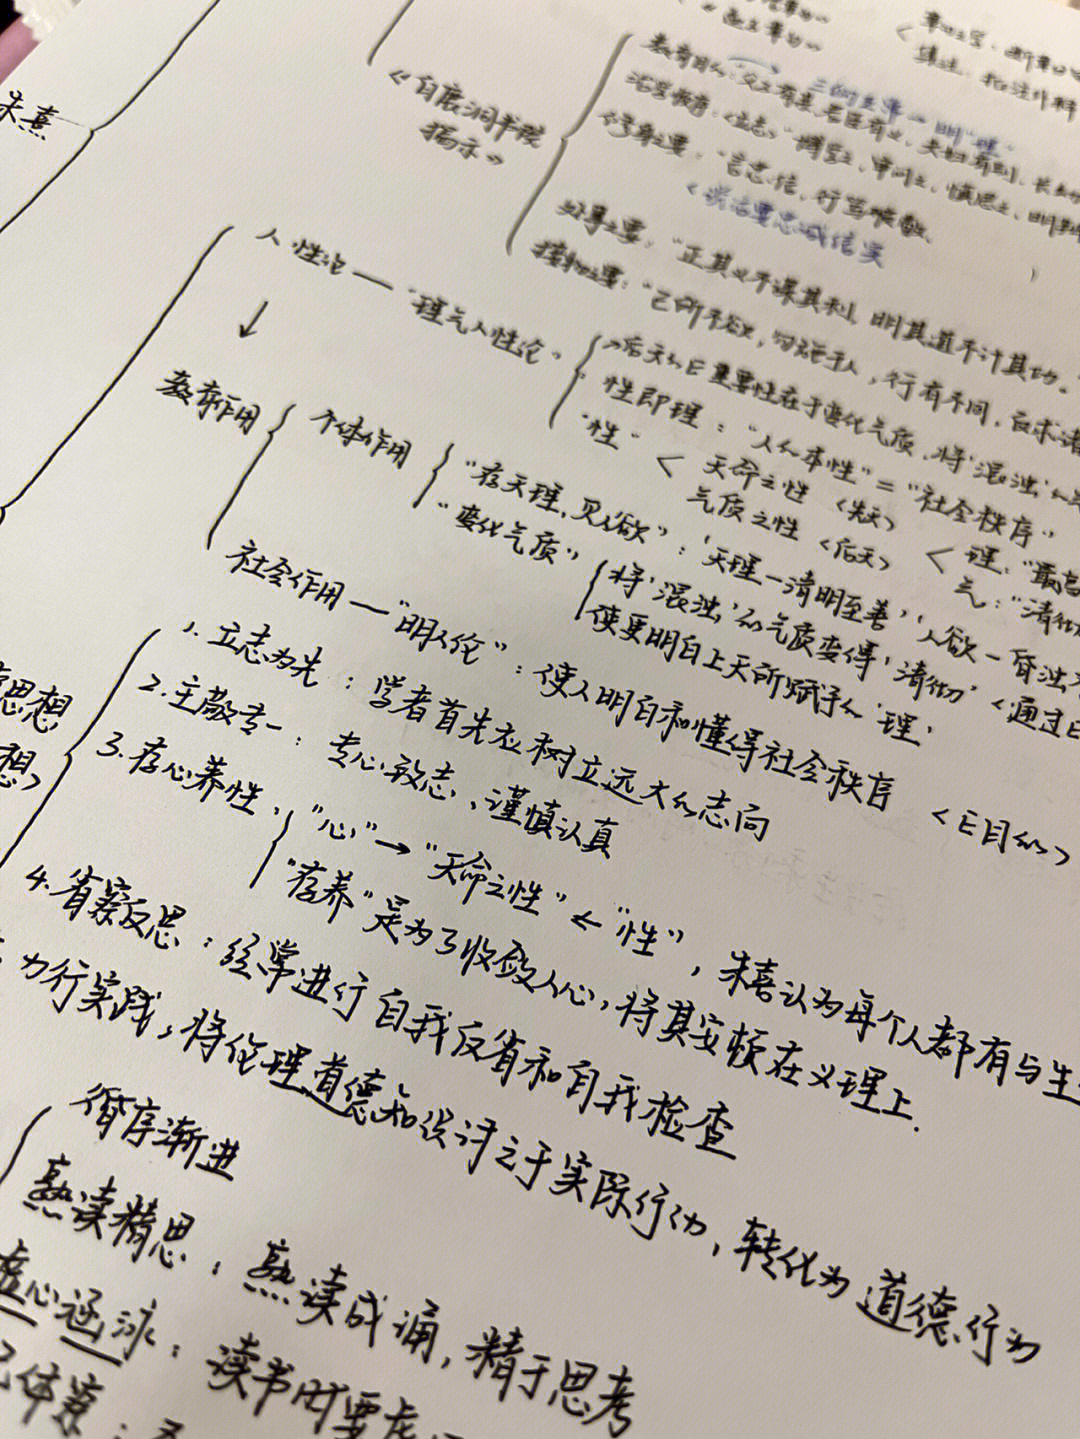 朱熹
《白鹿洞书院
揭示》
教育目的："父子有亲，君臣有义，夫妇有别，长幼
三纲五常→明"理"
治学教育：《立志》"博学之、审问之、慎思之、明辨
修身之要："言忠信，行笃敬
<说话要忠诚信实
处事之要："正其义不谋其利，明其道不计其功。
接物之要："己所不欲，勿施于人，行有不同，反求诸
人性论—"理气人性论"
后天的E重要性在于变化气质，将'混浊'的气
性即理："人的本性"="社会秩序"
"性"
天命之性<先天>
理："最高
气质之性<后天>
气："清彻
教育作用
个体作用
"存天理，灭人欲"：'天理—清明至善''人欲—昏浊
"变化气质"
将'混浊'的气质变得'清彻'<通过E
使更明白上天所赋予的'理'
社会作用—"明人伦"：使人明白和懂得社会秩序 <E目的>
思想
想>
1.立志为先：学者首先应树立远大的志向
2.主敬专一：专心致志，谨慎认真
3.存心养性，"心"→"天命之性"←"性"，朱熹认为每个人都有与生
"存养"是为了收敛人心，将其安顿在义理上.
4.省察反思：经常进行自我反省和自我检查
力行实践，将伦理道德知识讨之于实际行动，转化为道德行为
循序渐进
熟读精思：熟读成诵，精于思考
虚心涵泳：读书时要虚
己体察：